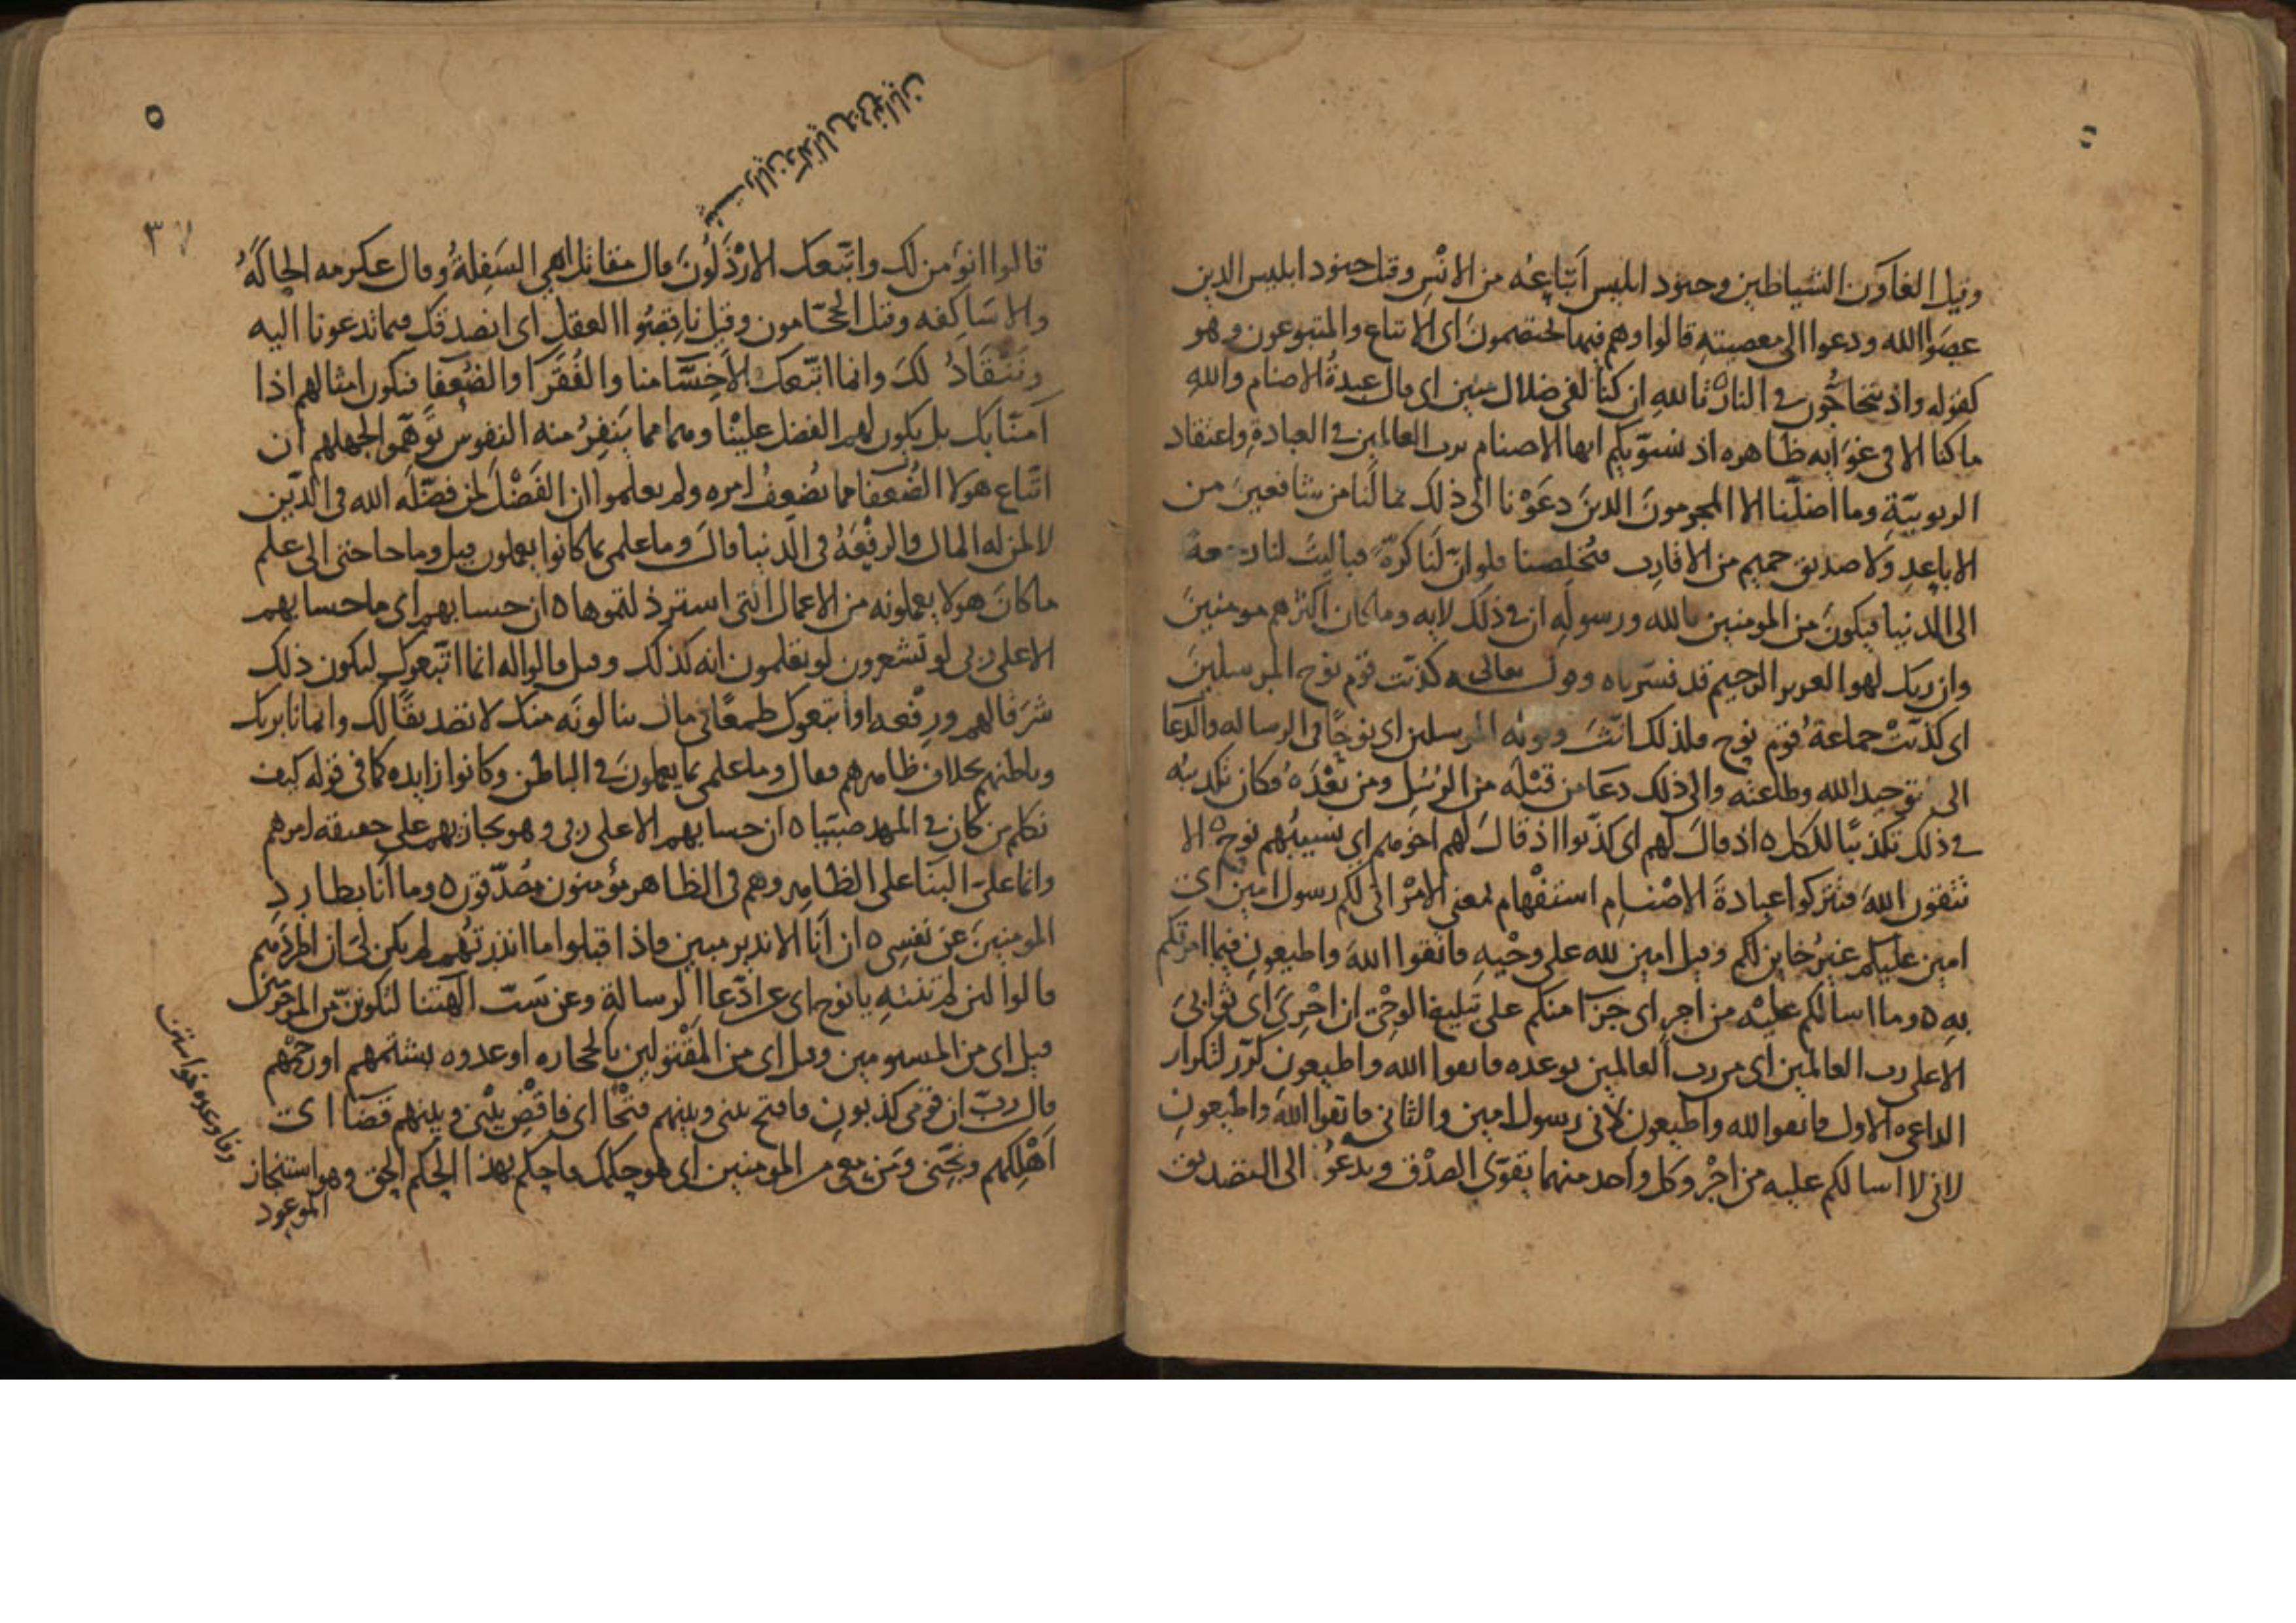 وقيل الغاوون الشياطين وجنود ابليس اَتْبَاعُه من الانْسِ وقيل جنود ابليس الذين
عصَوا الله ودعوا الى معصيته قالوا وهم فيها يختصمونَ اى الاتباع والمتبوعون وهو
كقوله واذ يتحاجُّون في النار تالله ان كنا لفى ضلال مبين اى قال عبدةُ الاصنام والله
ما كنا الا فى غوَايه ظاهره اذ نسوّيكم ايها الاصنام برب العالمين في العبادةِ واعتقاد
الربوبيّةِ وما اضلّنا الا المجرمونَ الذينَ دعَوْنا الى ذلك فما لَنا من شافعينَ من
الاباعِدِ ولا صديق حميم من الاقارب فتُخلِصنا فلو انّ لَنا كرّةً فياليتَ لنا رجعة
الى الدنيا فيكونَ من المومنين بالله ورسوله ان في ذلك لايه وما كان اكثرهم مومنينَ
وان ربك لهو العزيز الرحيم قد فسّرناه وقوله تعالى كذبت قوم نوح المرسلينَ
اى كذبَتْ جماعةُ قوم نوح فلذلك انّثَ وقوله المرسلين اى نوحًا فى الرساله والدّعا
الى توحيد الله وطاعته والى ذلك دعَا من قَبْلَه من الرُسُلِ ومن بَعْدَهُ فكان تكذيبُه
في ذلك تكذيبًا للكل ه اذ قالَ لهم اى كذّبوا اذ قالَ لهم اخوهم اى نسيبُهم نوح ه الا
تتقون اللهَ فتتركوا عبادةَ الاصْنام استفْهام بمعنى الامْرِ انى لكم رسول امين اى
امين عليكم غيرُ خاين لكم وقيل امين لله على وحْيهِ فاتقوا اللهَ واطيعونِ فيما امرتكم
بهِ ه وما اسالكم عليْه من اجرٍ اى جزآ منكم على تبليغ الوحْىِ ان اجْرِىَ اى ثوابىَ
الا على رب العالمين اى من رب العالمين بوعده فاتقوا الله واطيعون كرّر لتكرار
الداعى ه الاول فاتقوا لله واطيعون لانى رسول امين والثانى فاتقوا اللهَ واطيعونِ
لانى لا اسالكم عليه من اجْرٍ وكل واحد منهما يقوّى الصدْقَ ويدعُو الى التصديق
٥
٣٧
قالوا انؤمن لك واتّبعك الارْذَلُونَ قال مقاتل اهى السَفِلةُ وقال عكرمه الحاكَةُ
والاسَاكِفه وقيل الحجّامون وقيل ناقِصُوا العقل اى انصدقك فيما تدعونا اليه
ونَنْقَادُ لكَ وانما اتّبعك الاَخِسَّآ منا والفُقَرآ والضُعفا فنكون امثالهم اذا
آمنّا بك بل يكون لهم الفضل علينا وهما مما يَنفِرُ منه النفوسُ توَهّموا لجهلهم ان
اتّباع هولا الضُعفا مما يُضعِفُ امره ولم يعلموا ان الفَضْلَ لمن فضّلَه الله فى الدّين
لا لمن له المال والرفْعَهُ فى الدنيا قالَ وما علمى بما كانوا يعملون قيل وما حاجتى الى علم
ما كانَ هولا يعملونه من الاعمال التى استرذلتموها ه ان حسابهم اى ما حسابهم
الا على ربى لو تشعرون لو تعلمون انه كذلك وقيل قالوا له انما اتّبعوك ليكون ذلك
شرَفا لهم ورِفْعه او اتبعوك طمعًا فى مال ينالونَه منك لا تصديقًا لك وايمانا بربك
وباطنهم بخلاف ظاهرهم فقال وما علمى بما يعملونَ في الباطن وكانوا زايده كما فى قوله كيف
نكلم من كان في المهد صبيّا ه ان حسابهم الا على ربى وهو يجازيهم على حقيقه امرهم
وانما علىّ البنا على الظاهر وهم فى الظاهر مؤمنون مصُدّقون ه وما انا بطاردِ
المومنينَ عن نفسى ه ان اَنَا الا نذير مبين فاذا قبلوا ما انذرتُهم لم يكن لى ان اطردَهم
قالوا لئن لم تنتهِ يا نوح اى عن ادّعا الرسالة وعن سَبّ الهتنا لتكوننّ من المرجومين
قيل اى من المشتومين وقيل اى من المقْتولين بالحجاره اوعدوه بشتمهم او رجْمهم
قال ربّ ان قومى كذبونِ فافتح بينى وبينهم فتْحًا اى فاقْضِ بيْنى وبينهم قضَآ اى
اَهْلِكهم ونَجِّنى ومَن معى من المومنين اى هو حكمك فاحكم بهذا الحكم الحق وهو استنجاز
الموعود
وفا وعده خواستن